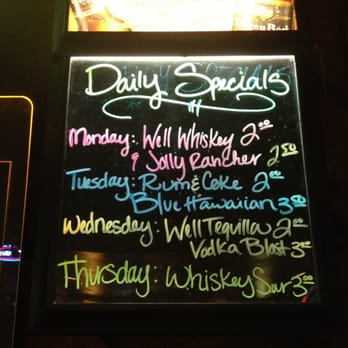 Daily Specials
Monday: Well Whiskey 2.00
& Jolly Rancher 2.50
Tuesday: Rum & Coke 2.00
Blue Hawaiian 3.00
Wednesday: Well Tequilla 2.00
Vodka Blast 3.00
Thursday: Whiskey Sur 3.00